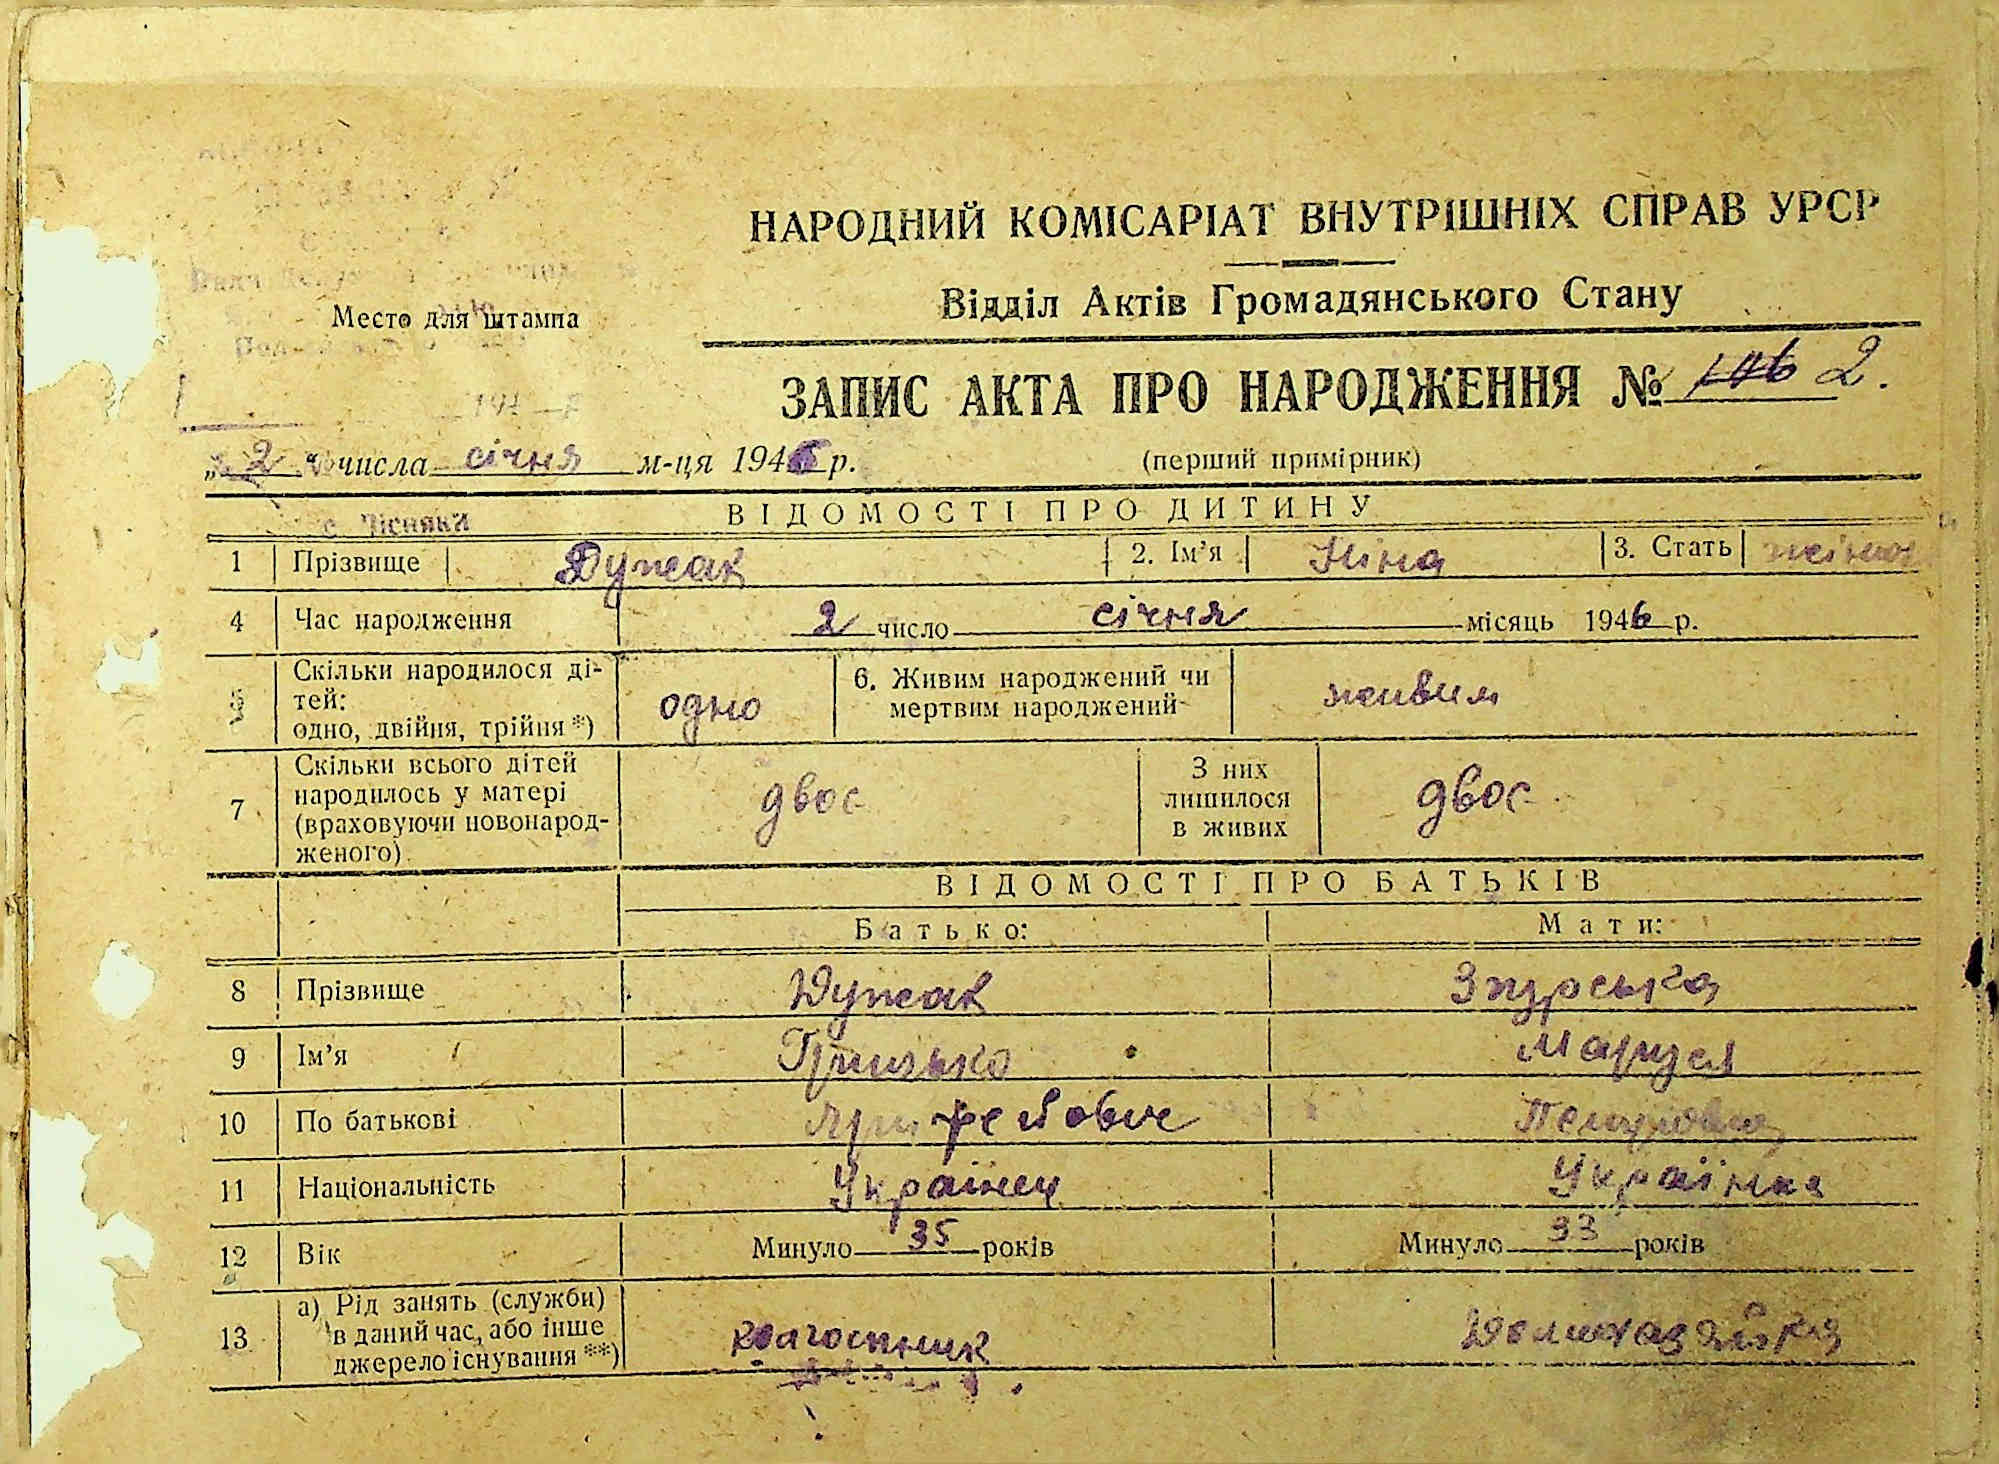 НАРОДНИЙ КОМІСАРІАТ ВНУТРІШНІХ СПРАВ УРСР
Відділ Актів Громадянського Стану
Место для штампа
ЗАПИС АКТА ПРО НАРОДЖЕННЯ № 106 2.
„ 2 “ числа січня м-ця 1946 р. (перший примірник)
ВІДОМОСТІ ПРО ДИТИНУ
с. Лісняки
1 Прізвище Дужак 2. Ім’я Ніна 3. Стать жіноч
4 Час народження 2 число січня місяць 1946 р.
5 Скільки народилося ді-
тей:
одно, двійня, трійня *) одно 6. Живим народжений чи
мертвим народжений живим
7 Скільки всього дітей
народилось у матері
(враховуючи новонарод-
женого) двоє З них
лишилося
в живих двоє
ВІДОМОСТІ ПРО БАТЬКІВ
Батько: Мати:
8 Прізвище Дужак Згурська
9 Ім’я Грицько Маруся
10 По батькові Петровна
11 Національність Українец Українка
12 Вік Минуло 35 років Минуло 33 років
13 а) Рід занять (служби)
в даний час, або інше
джерело існування **) колгоспник Домохазяйка